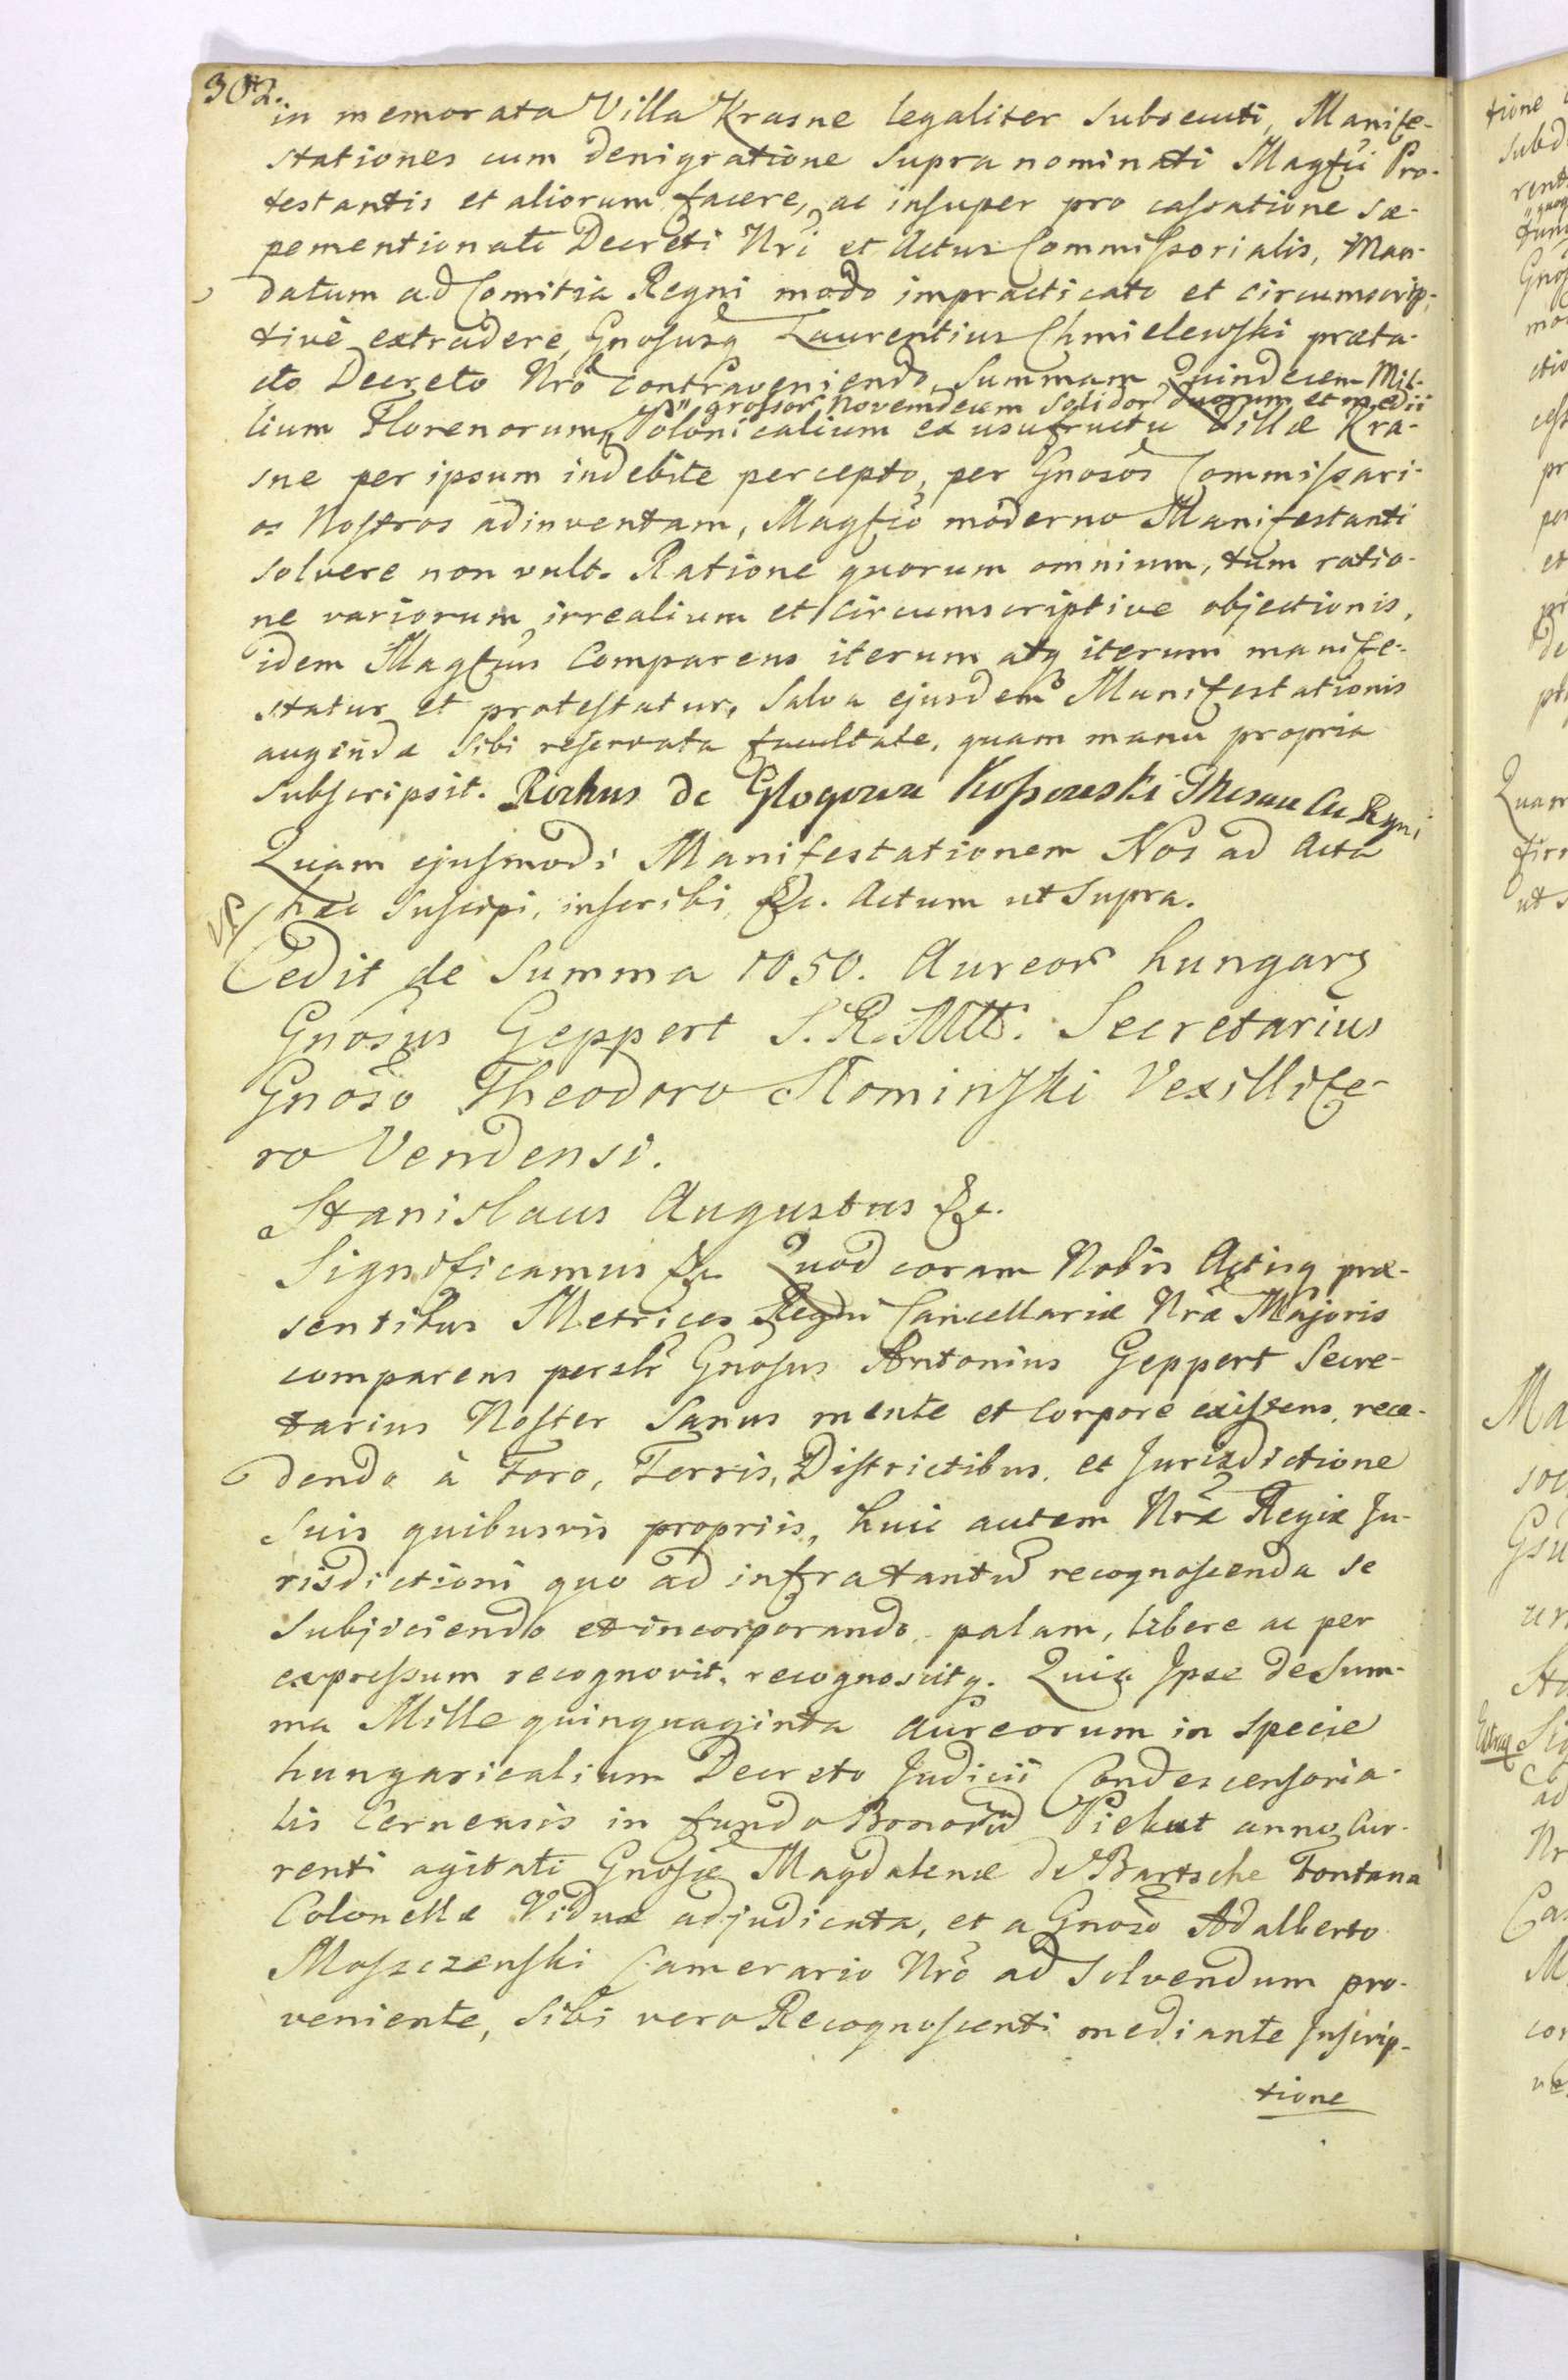 302.
in memorata Villa Krasne legaliter subsecuti, Manife-
stationes cum denigratione supra nominati Magfci Pro-
testantis et aliorum facere, ac insuper pro cassatione sæ-
pementionati Decreti Nri et Actus Commissorialis, Man-
datum ad Comitia Regni modo impracticato et circumscrip-
tivè extradere, Gnosusq Laurentius Chmielewski præta-
cto Decreto Nro contraveniendo, Summam Quindecem Mil-
grossor Novemdecem Solidor duorum et medii
lium Florenorum Polonicalium ex usufructu Villæ Kra-
sne per ipsum indebite percepto, per Gnosos Commissari-
os Nostros adinventam, Magfco moderno Manifestanti
solvere non vult. Ratione quorum omnium, tum ratio-
ne variorum irrealium et circumscriptive objectionis,
idem Magfcus Comparens iterum atq iterum manife-
statur et protestatur, Salva ejusdem Manifestationis
augendæ sibi reservata facultate, quam manu propria
subscripsit. Rochus de Głogowa Kossowski Thesau Cu Rgni
Quam ejusmodi Manifestationem Nos ad Acta
hæc suscipi, inscribi &c. Actum ut supra.
Cedit de Summa 1050. Aureor hungar
Gnosus Geppert S. R. Mtts. Secretarius
Gnoso Theodoro Słominski Vexillife-
ro Vendensi.
Stanislaus Augustus &c.
Significamus &c. Quod coram Nobis Actisq præ-
sentibus Metrices Regni Cancellariæ Nræ Majoris
comparens perslr Gnosus Antonius Geppert Secre-
tarius Noster Sanus mente et corpore existens, rece-
dendo à Foro, Terris, Districtibus, et Jurisdictione
suis quibusvis propriis, huic autem Nræ Regiæ Ju-
risdictioni quo ad infra tantu recognoscenda se
subjiciendo et incorporando, palam, libere ac per
expressum recognovit, recognoscitq. Quia Ipse de Sum-
ma Mille quinquaginta Aureorum in specie
hungaricalium Decreto Judicii Condescensoria-
lis Cernensis in fundo Bonoru Piekut anno cur-
renti agitati Gnosæ Magdalenæ de Bartsche Fontana
Colonellæ Viduæ adjudicata, et a Gnoso Adalberto
Moszczenski Camerario Nro ad solvendum pro-
veniente, sibi vero Recognoscenti mediante Inscrip-
tione